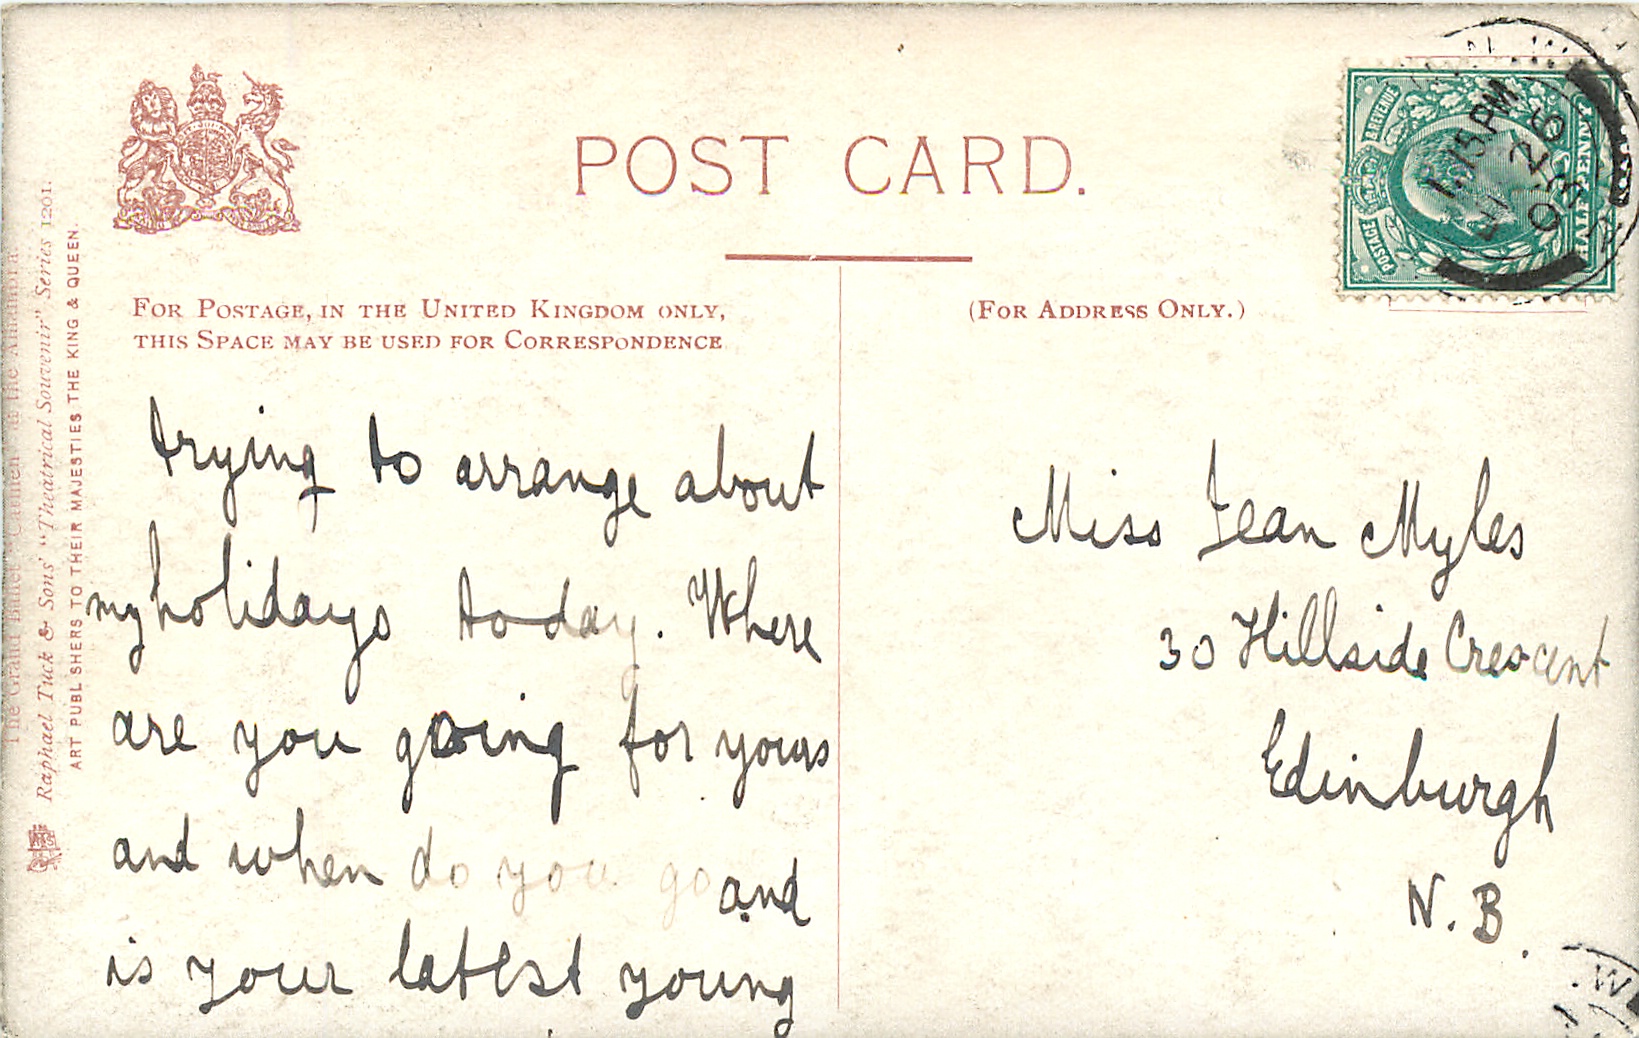 POST CARD.
FOR POSTAGE, IN THE UNITED KINGDOM ONLY,
THIS SPACE MAY BE USED FOR CORRESPONDENCE
(FOR ADDRESS ONLY.)
The Grand Ballet "Carmen" at the Alhambra
Raphael Tuck & Sons' "Theatrical Souvenir" Series 1201.
ART PUBLISHERS TO THEIR MAJESTIES THE KING & QUEEN.
POSTAGE & REVENUE
HALFPENNY
1.15 PM
26
03
trying to arrange about
my holidays today. Where
are you going for yours
and when do you go and
is your latest young
Miss Jean Myles
30 Hillside Crescent
Edinburgh
N.B.